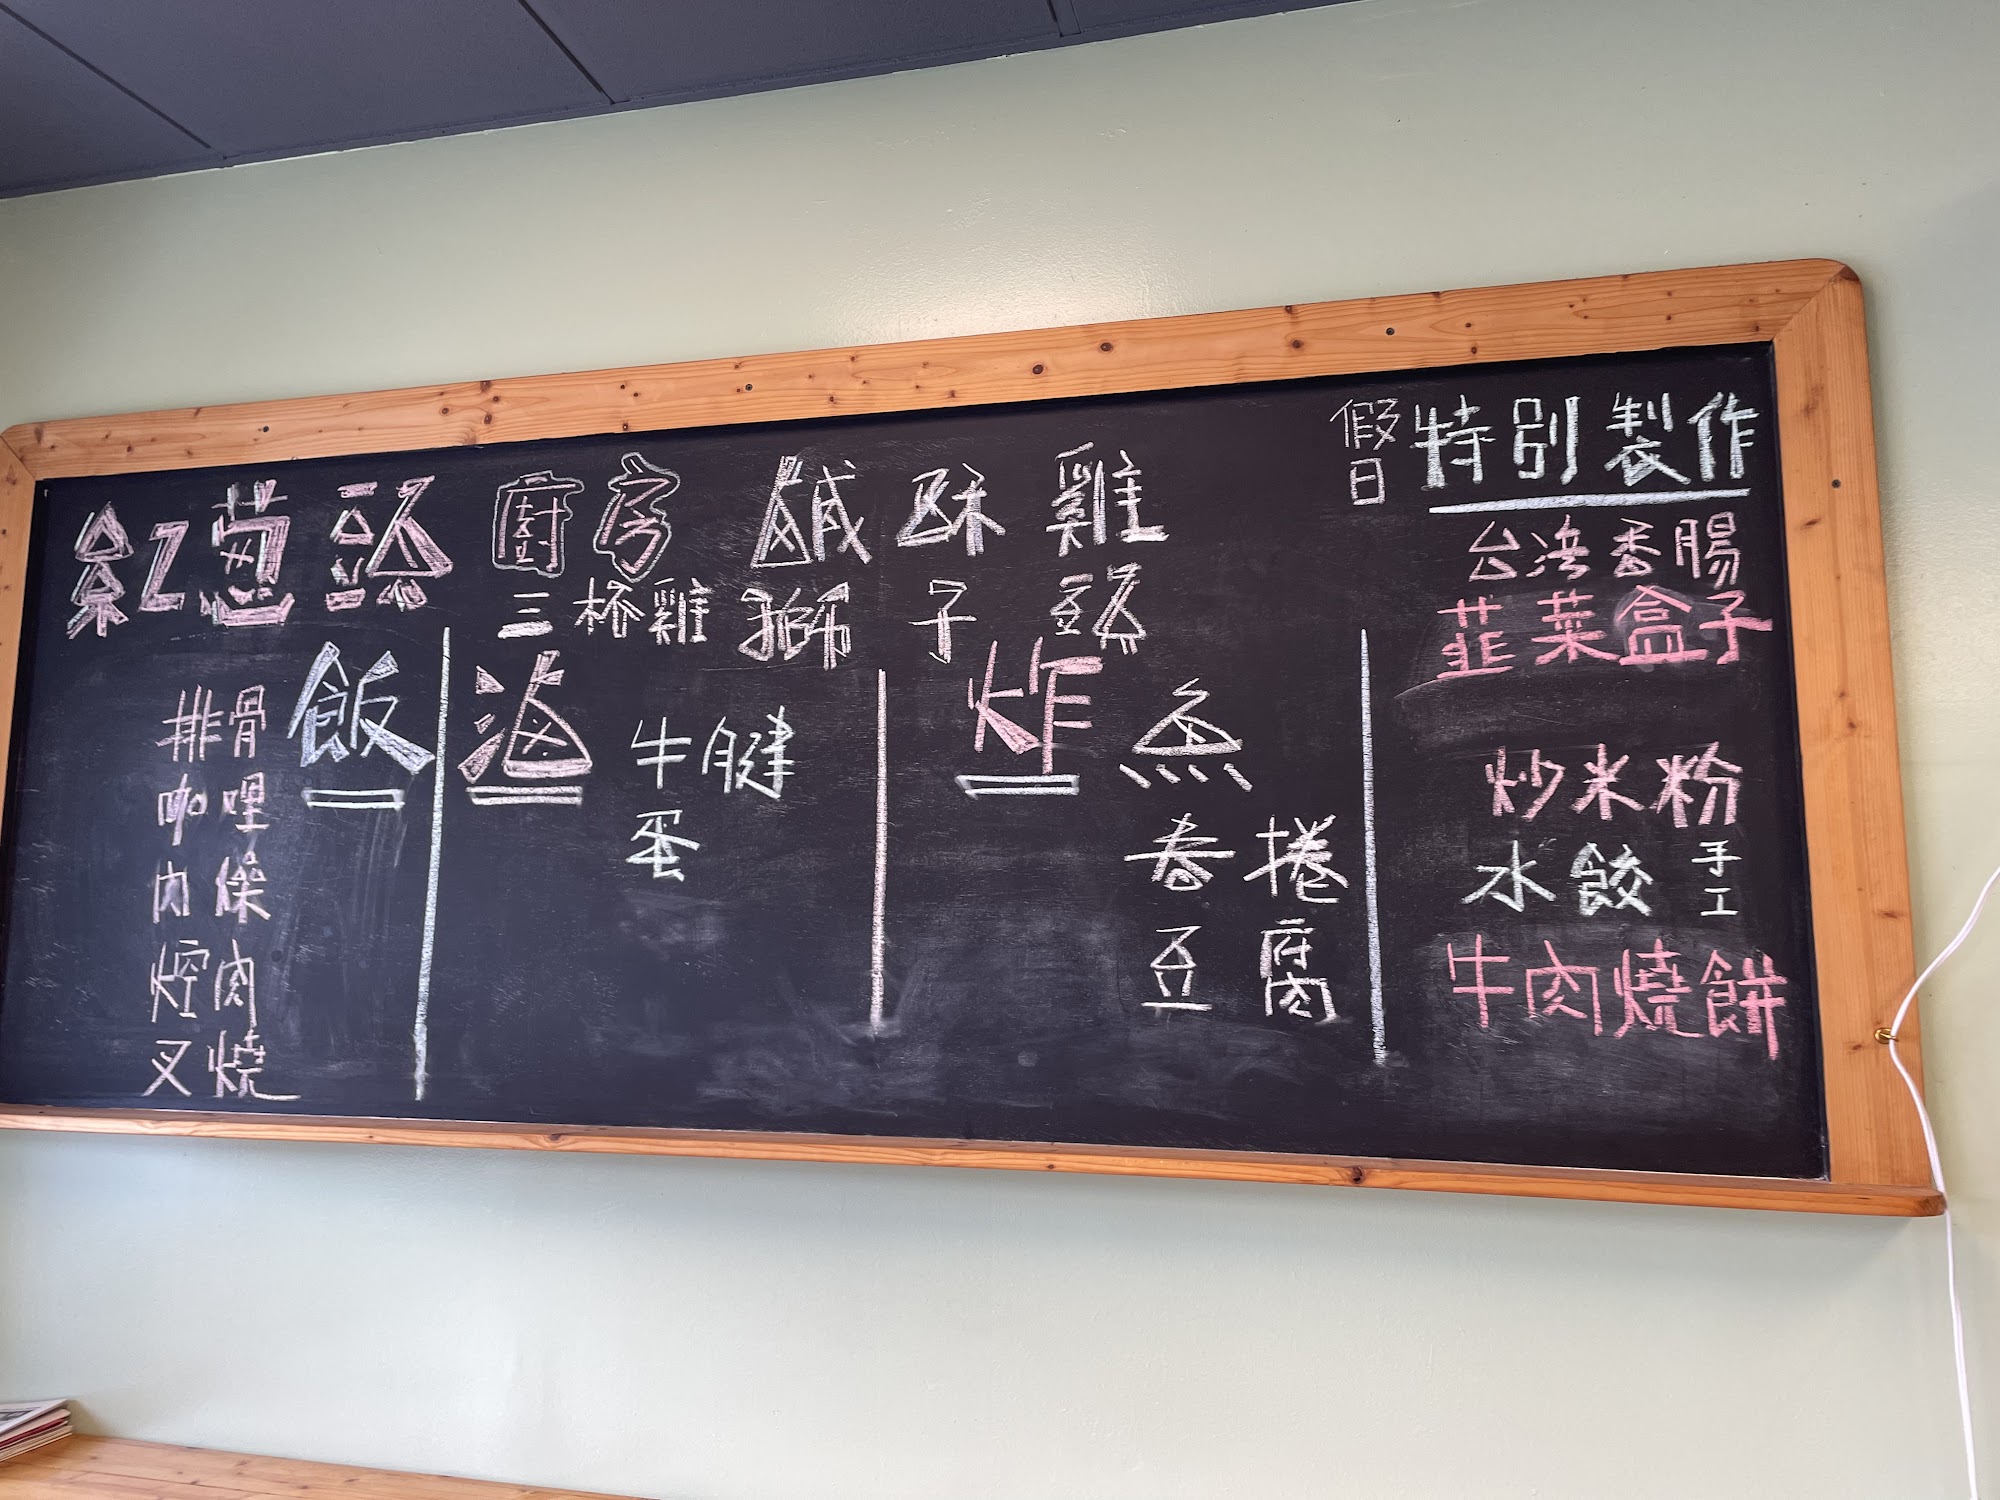 紅蔥頭廚房
鹹酥雞
三杯雞
獅子頭
飯
排骨
咖哩
肉燥
焢肉
叉燒
滷
牛腱
蛋
炸
魚
春捲
豆腐
假日特別製作
台湾香腸
韮菜盒子
炒米粉
水餃手工
牛肉燒餅